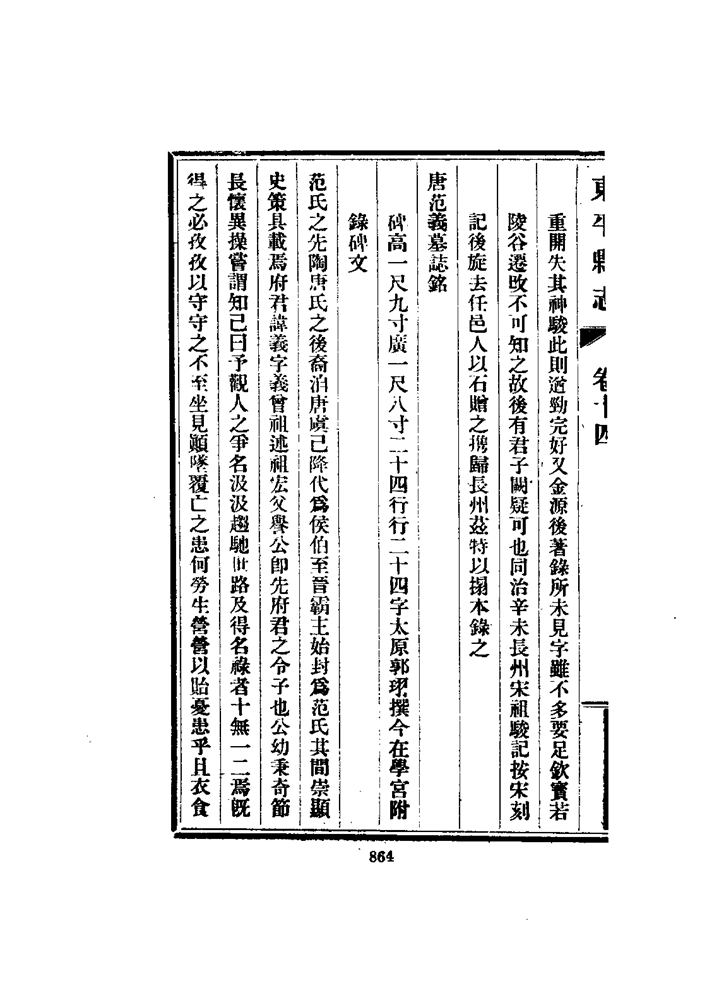 東平縣志 卷十四
重開失其神駿此則遒勁完好又金源後著錄所未見字雖不多要足欽寶若
陵谷遷改不可知之故後有君子闕疑可也同治辛未長州宋祖駿記按宋刻
記後旋去任邑人以石贈之携歸長州茲特以搨本錄之
唐范義墓誌銘
碑高一尺九寸廣一尺八寸二十四行行二十四字太原郭珝撰今在學宮附
錄碑文
范氏之先陶唐氏之後裔洎唐虞已降代爲侯伯至晉霸主始封爲范氏其間崇顯
史策具載焉府君諱義字義曾祖述祖宏父譽公卽先府君之令子也公幼秉奇節
長懷異操嘗謂知己曰予觀人之爭名汲汲趨馳世路及得名祿者十無一二焉旣
得之必孜孜以守守之不至坐見顚墜覆亡之患何勞生營營以貽憂患乎且衣食
864